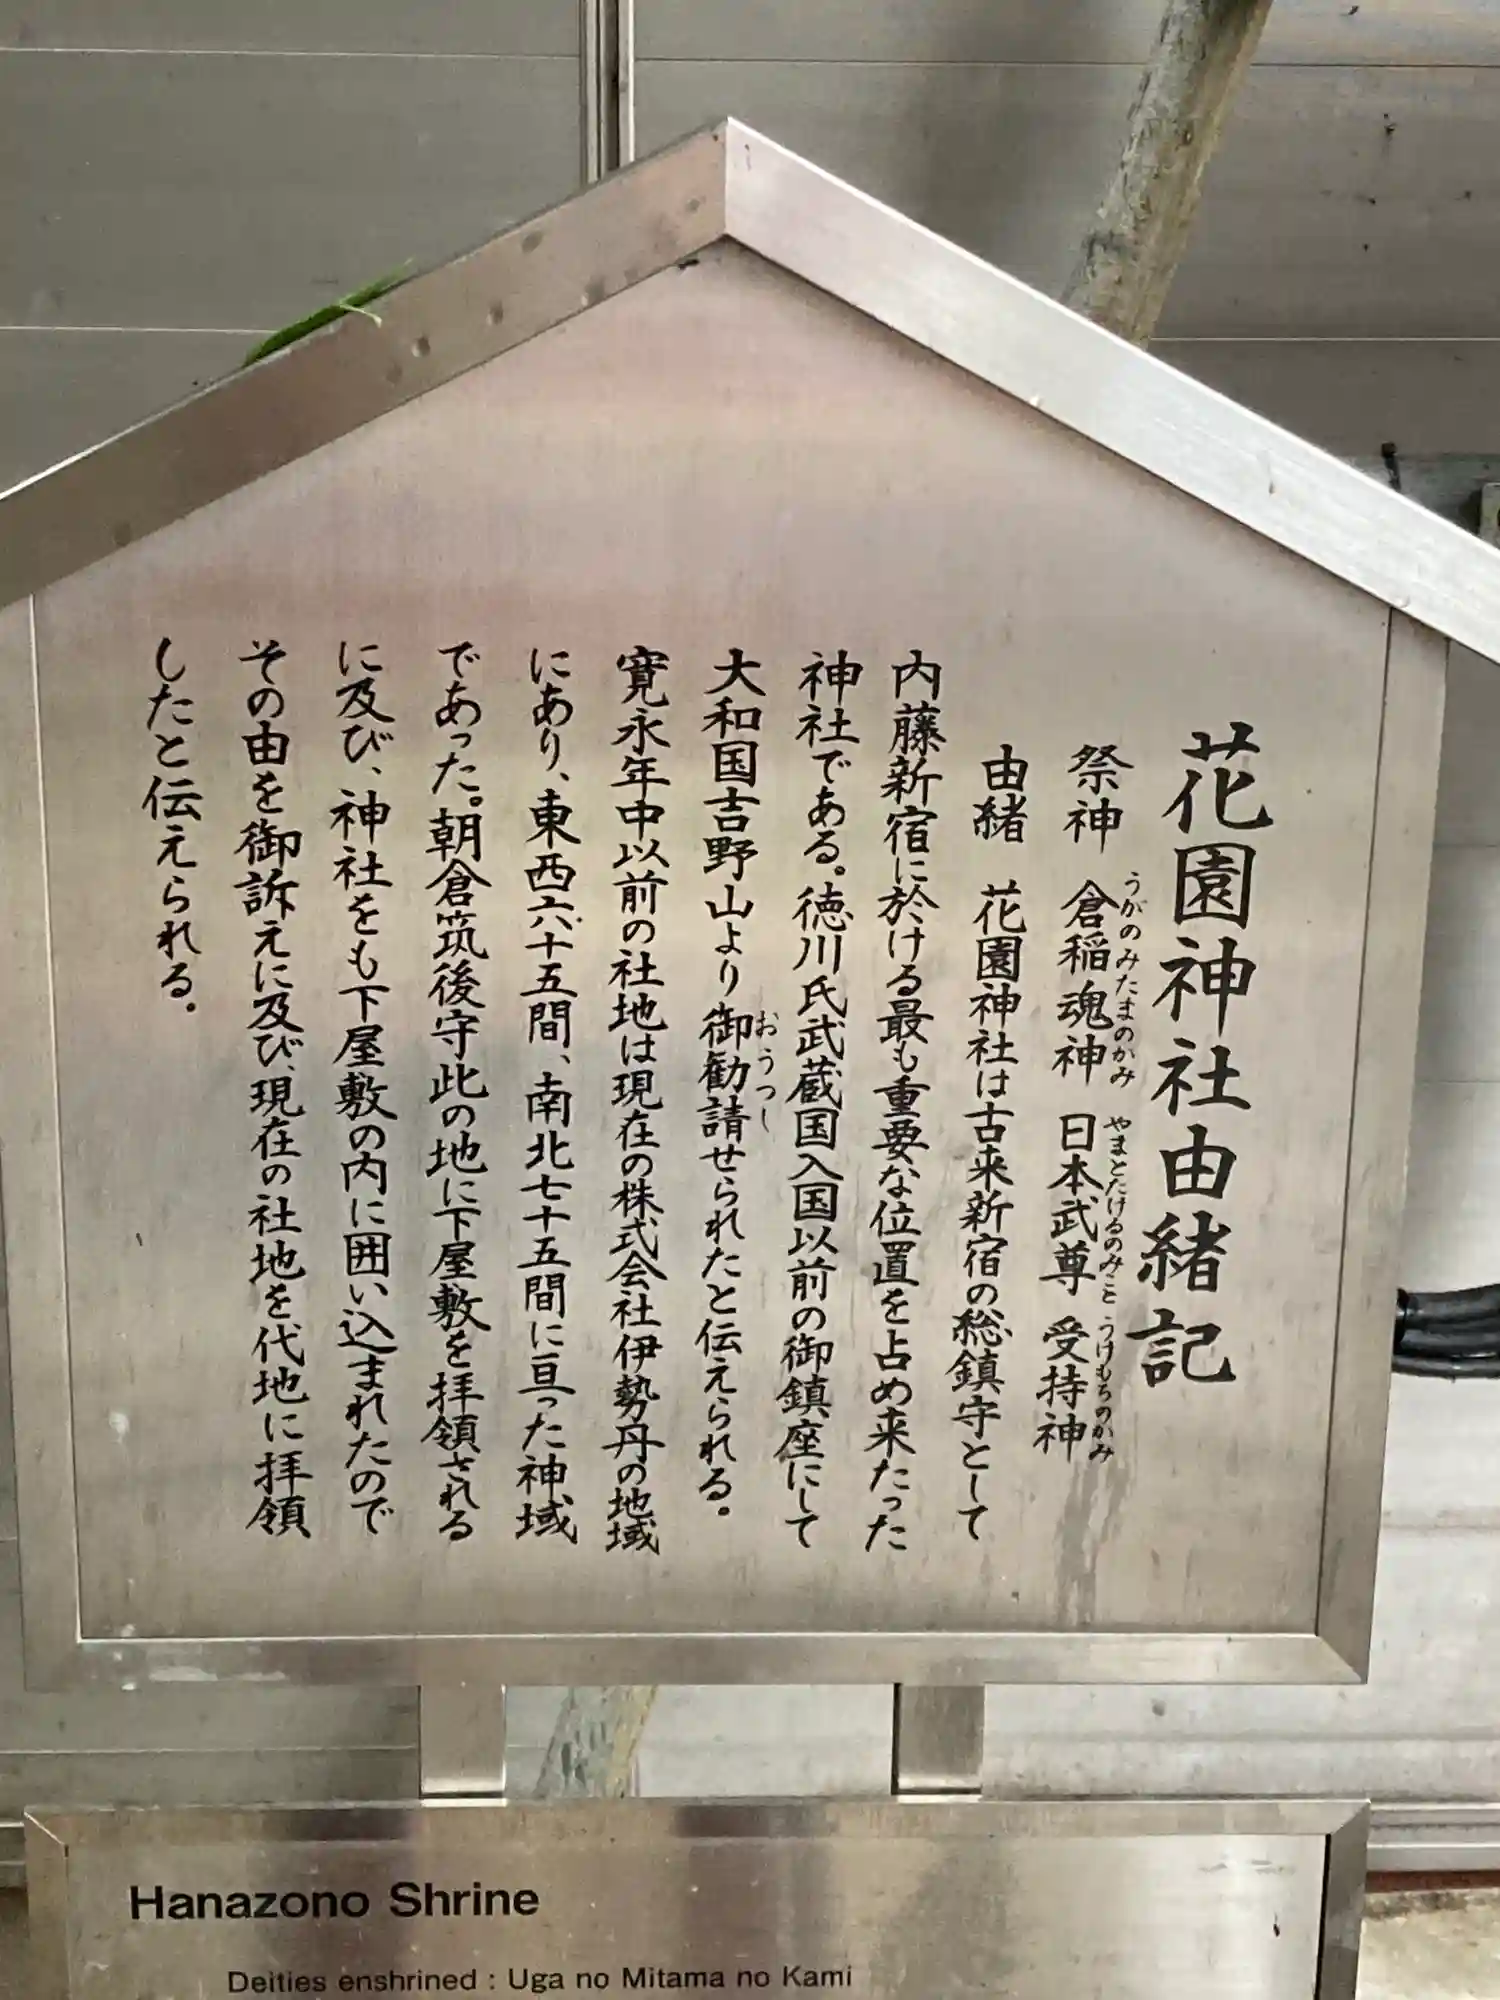 花園神社由緒記
祭神 倉稲魂神 日本武尊 受持神
うがのみたまのかみ やまとたけるのみこと うけもちのかみ
由緒 花園神社は古来新宿の総鎮守として
内藤新宿に於ける最も重要な位置を占め来たった
神社である。徳川氏武蔵国入国以前の御鎮座にして
大和国吉野山より御勧請せられたと伝えられる。
おうつし
寛永年中以前の社地は現在の株式会社伊勢丹の地域
にあり、東西六十五間、南北七十五間に亘った神域
であった。朝倉筑後守此の地に下屋敷を拝領される
に及び、神社をも下屋敷の内に囲い込まれたので
その由を御訴えに及び、現在の社地を代地に拝領
したと伝えられる。
Hanazono Shrine
Deities enshrined : Uga no Mitama no Kami